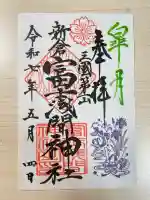 皐月
奉拝
三國第一山
新倉富士浅間神社
令和七年五月四日